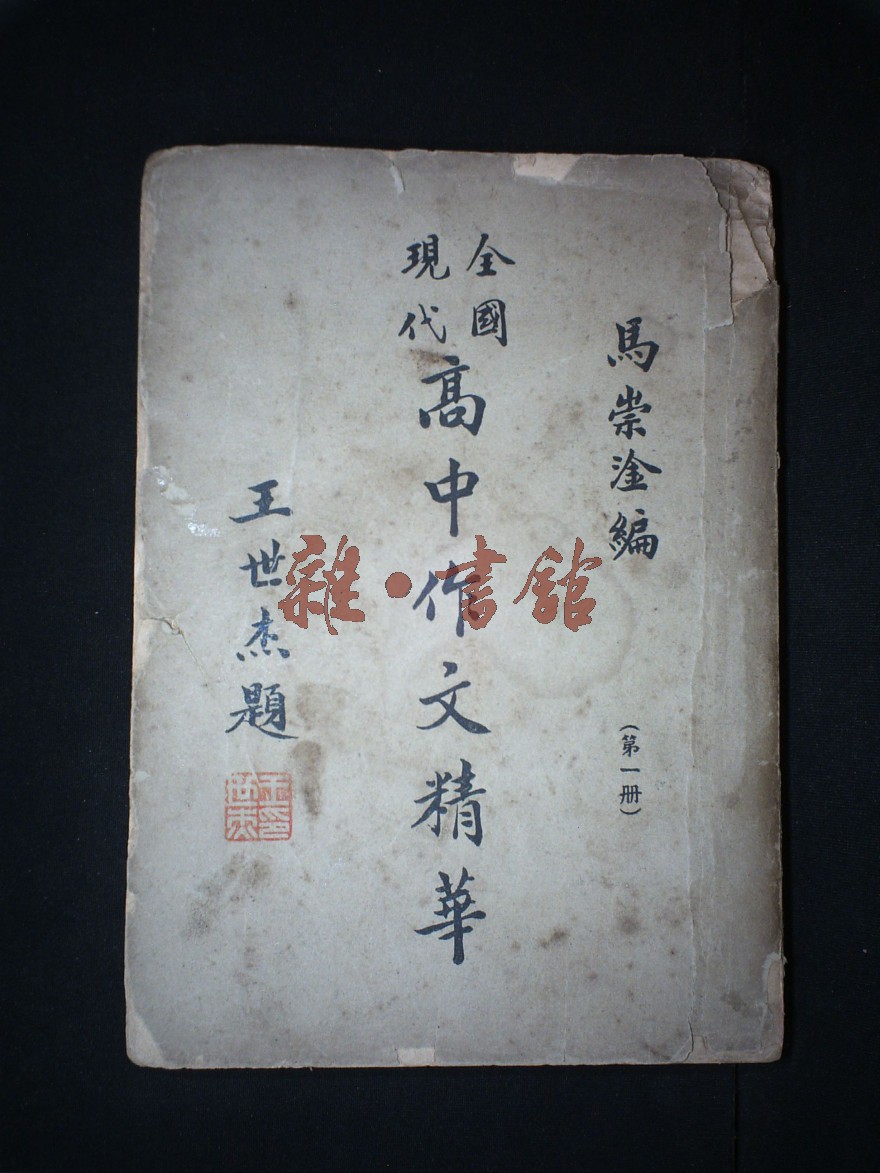 馬崇淦編
（第一册）
全國
現代
高中作文精華
王世杰題
王世杰印
雜·書館